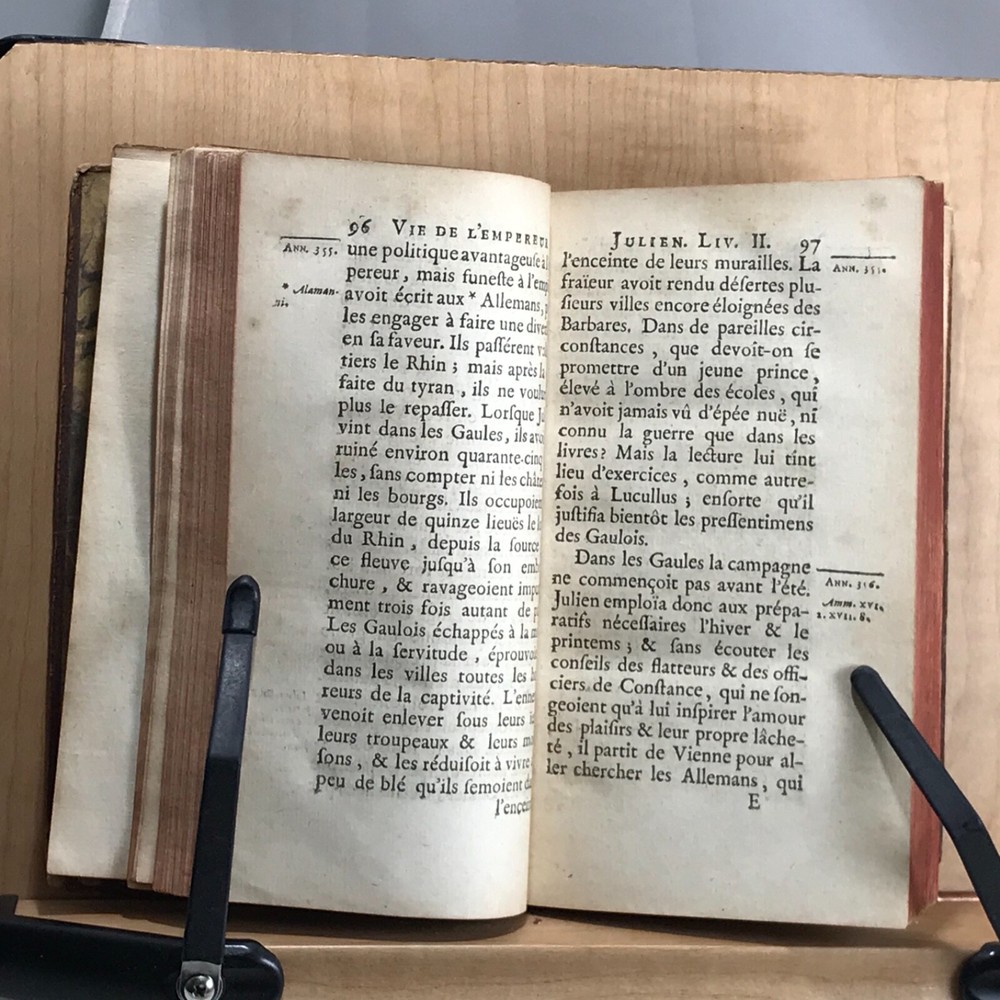 96 VIE DE L'EMPEREUR
ANN. 355.
une politique avantageuse à l
pereur, mais funeste à l'em
* Alaman-
ni.
avoit écrit aux * Allemans,
les engager à faire une dive
en sa faveur. Ils passérent
tiers le Rhin ; mais après la
faire du tyran, ils ne voul
plus le repasser. Lorsque Ju
vint dans les Gaules, ils avo
ruiné environ quarante-cinq
les, sans compter ni les châte
ni les bourgs. Ils occupoien
largeur de quinze lieuës le l
du Rhin, depuis la source
ce fleuve jusqu'à son emb
chure, & ravageoient impu
ment trois fois autant de p
Les Gaulois échappés à la m
ou à la servitude, éprouvo
dans les villes toutes les h
reurs de la captivité. L'enne
venoit enlever sous leurs
leurs troupeaux & leurs
sons, & les réduisoit à vivre
peu de blé qu'ils semoient d
l'encein
JULIEN. LIV. II. 97
ANN. 355.
l'enceinte de leurs murailles. La
fraïeur avoit rendu désertes plu-
sieurs villes encore éloignées des
Barbares. Dans de pareilles cir-
constances, que devoit-on se
promettre d'un jeune prince,
élevé à l'ombre des écoles, qui
n'avoit jamais vû d'épée nuë, ni
connu la guerre que dans les
livres? Mais la lecture lui tint
lieu d'exercices, comme autre-
fois à Lucullus ; ensorte qu'il
justifia bientôt les pressentimens
des Gaulois.
Dans les Gaules la campagne
ANN. 356.
ne commençoit pas avant l'été.
Amm. XVI.
2. XVII. 8.
Julien emploïa donc aux prépa-
ratifs nécessaires l'hiver & le
printems ; & sans écouter les
conseils des flatteurs & des offi-
ciers de Constance, qui ne son-
geoient qu'à lui inspirer l'amour
des plaisirs & leur propre lâche-
té, il partit de Vienne pour al-
ler chercher les Allemans, qui
E